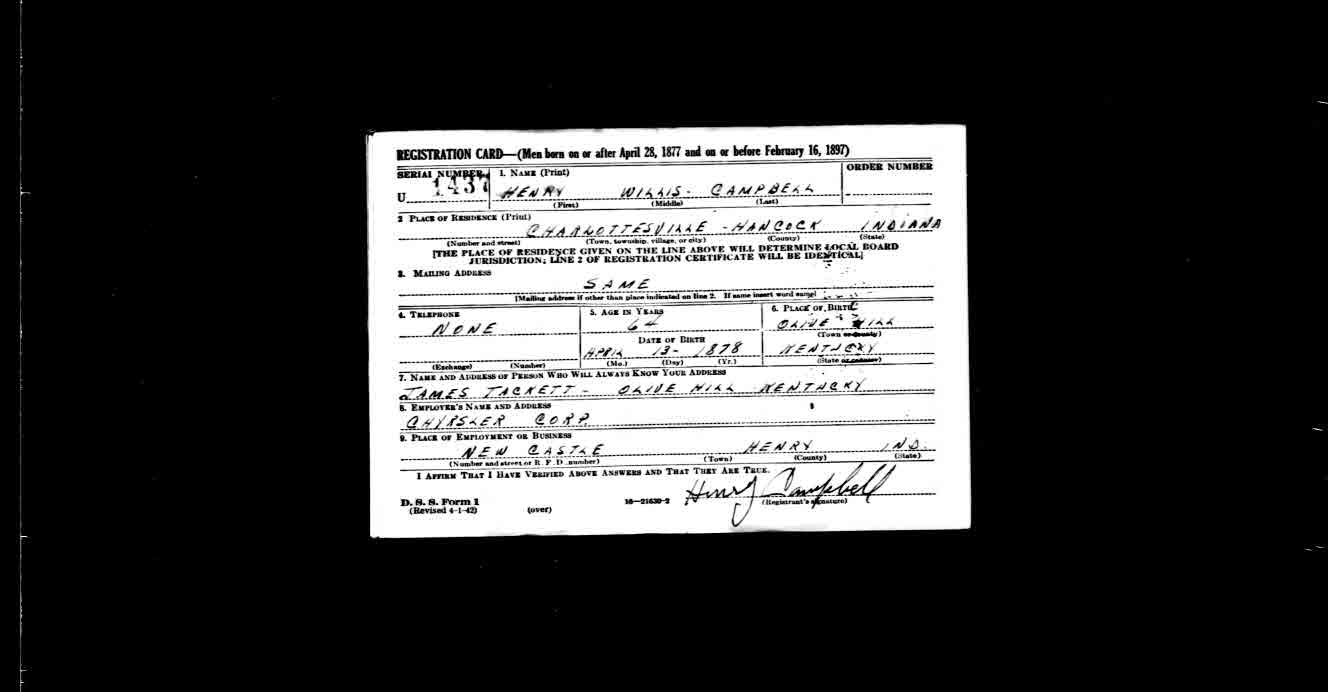 REGISTRATION CARD—(Men born on or after April 28, 1877 and on or before February 16, 1897)
SERIAL NUMBER 1. NAME (Print) ORDER NUMBER
U 1437 HENRY WILLIS- CAMPBELL
(First) (Middle) (Last)
2 PLACE OF RESIDENCE (Print)
CHARLOTTESVILLE - HANCOCK INDIANA
(Number and street) (Town, township, village, or city) (County) (State)
[THE PLACE OF RESIDENCE GIVEN ON THE LINE ABOVE WILL DETERMINE LOCAL BOARD
JURISDICTION; LINE 2 OF REGISTRATION CERTIFICATE WILL BE IDENTICAL]
3. MAILING ADDRESS
SAME
[Mailing address if other than place indicated on line 2. If same insert word same]
4. TELEPHONE 5. AGE IN YEARS 6. PLACE OF BIRTH
NONE 64 OLIVE HILL
DATE OF BIRTH (Town or county)
APRIL 13- 1878 KENTUCKY
(Exchange) (Number) (Mo.) (Day) (Yr.) (State or country)
7. NAME AND ADDRESS OF PERSON WHO WILL ALWAYS KNOW YOUR ADDRESS
JAMES TACKETT - OLIVE HILL KENTUCKY
8. EMPLOYER'S NAME AND ADDRESS
CHYRSLER CORP.
9. PLACE OF EMPLOYMENT OR BUSINESS
NEW CASTLE HENRY IND.
(Number and street or R. F. D. number) (Town) (County) (State)
I AFFIRM THAT I HAVE VERIFIED ABOVE ANSWERS AND THAT THEY ARE TRUE.
Henry Campbell
D. S. S. Form 1 16—21630-2 (Registrant's signature)
(Revised 4-1-42) (over)